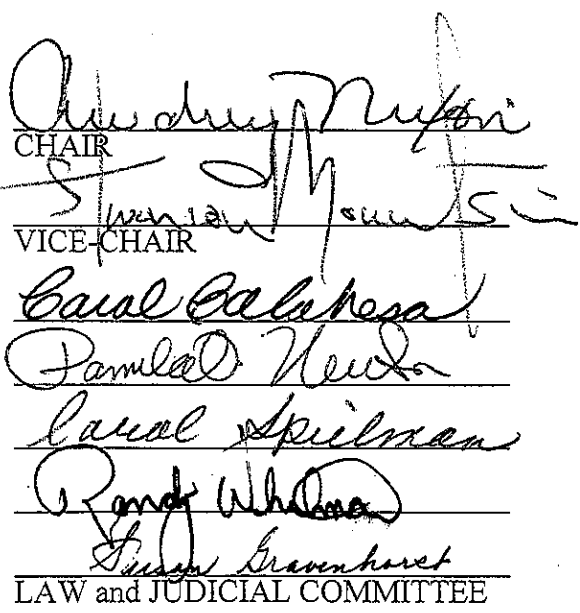 Audrey Nixon
CHAIR
Stevenson Mountsier
VICE-CHAIR
Carol Calabresa
Pamela O. Newton
Carol Spielman
Randy Whitmore
Susan Gravenhorst
LAW and JUDICIAL COMMITTEE